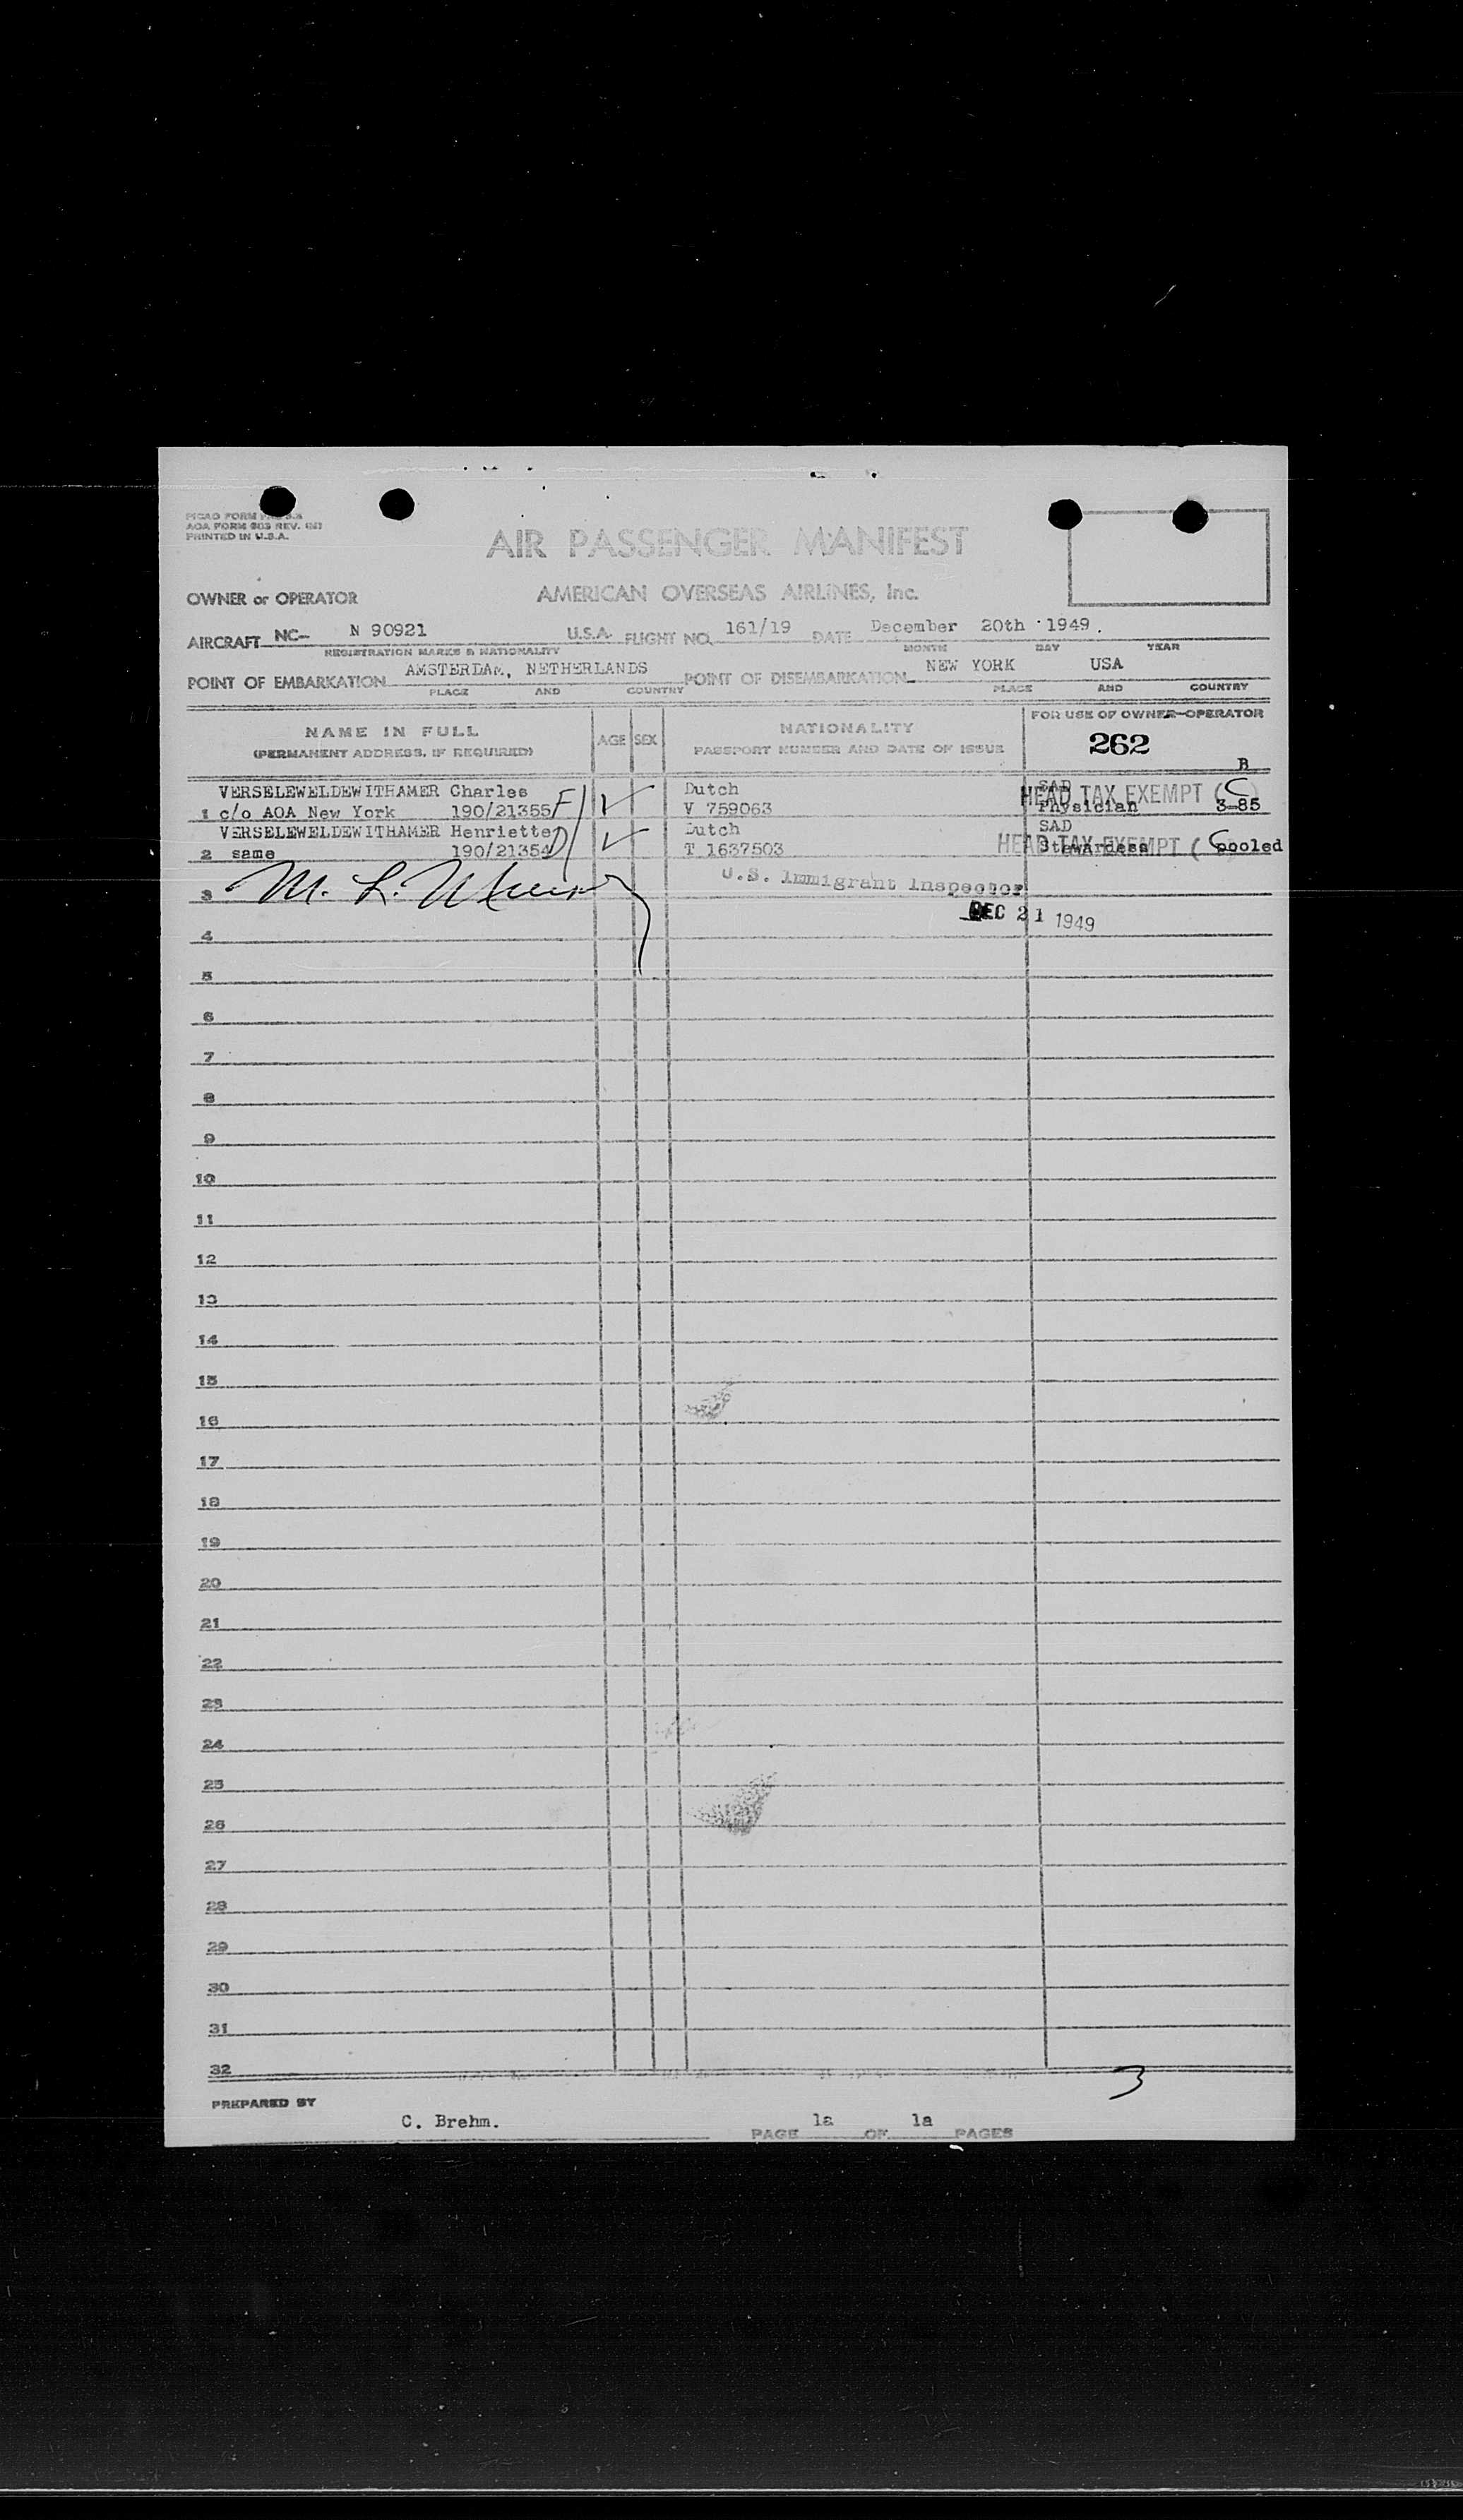 AOA FORM 903 REV.
PRINTED IN U.S.A.
AIR PASSENGER MANIFEST
AMERICAN OVERSEAS AIRLINES, Inc.
OWNER or OPERATOR
AIRCRAFT NC- N 90921 U.S.A. FLIGHT NO. 161/19 DATE December 20th 1949.
REGISTRATION MARKS & NATIONALITY MONTH DAY YEAR
POINT OF EMBARKATION AMSTERDAM, NETHERLANDS POINT OF DISEMBARKATION NEW YORK USA
PLACE AND COUNTRY PLACE AND COUNTRY
NAME IN FULL
(PERMANENT ADDRESS, IF REQUIRED)
AGE SEX
NATIONALITY
PASSPORT NUMBER AND DATE OF ISSUE
FOR USE OF OWNER-OPERATOR
262
B
VERSELEWELDEWITHAMER Charles Dutch SAD
HEAD TAX EXEMPT ( C )
1 c/o AOA New York 190/21355 F V 759063 Physician 3-85
VERSELEWELDEWITHAMER Henriette Dutch SAD
HEAD TAX EXEMPT ( C
2 same 190/21354 D T 1637503 Stewardess pooled
3 M. L. U.S. Immigrant Inspector
DEC 21 1949
4
5
6
7
8
9
10
11
12
13
14
15
16
17
18
19
20
21
22
23
24
25
26
27
28
29
30
31
32
3
PREPARED BY
C. Brehm.
PAGE 1a OF 1a PAGES